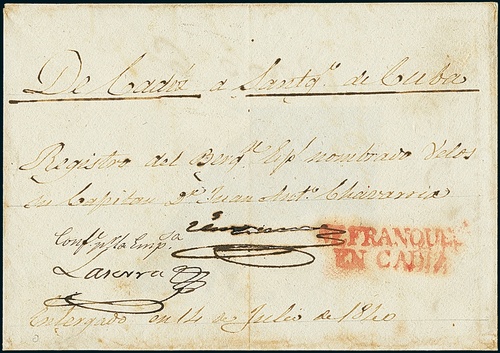 De Cadiz a Santgo. de Cuba
Registro del Bergn. Espl nombrado Velos
su Capitan Dn. Juan Anto. Chavarria
Conf. pr. la Empsa
Laserra
FRANQUEA
EN CADIZ
Entergado en 14 de Julio de 1840